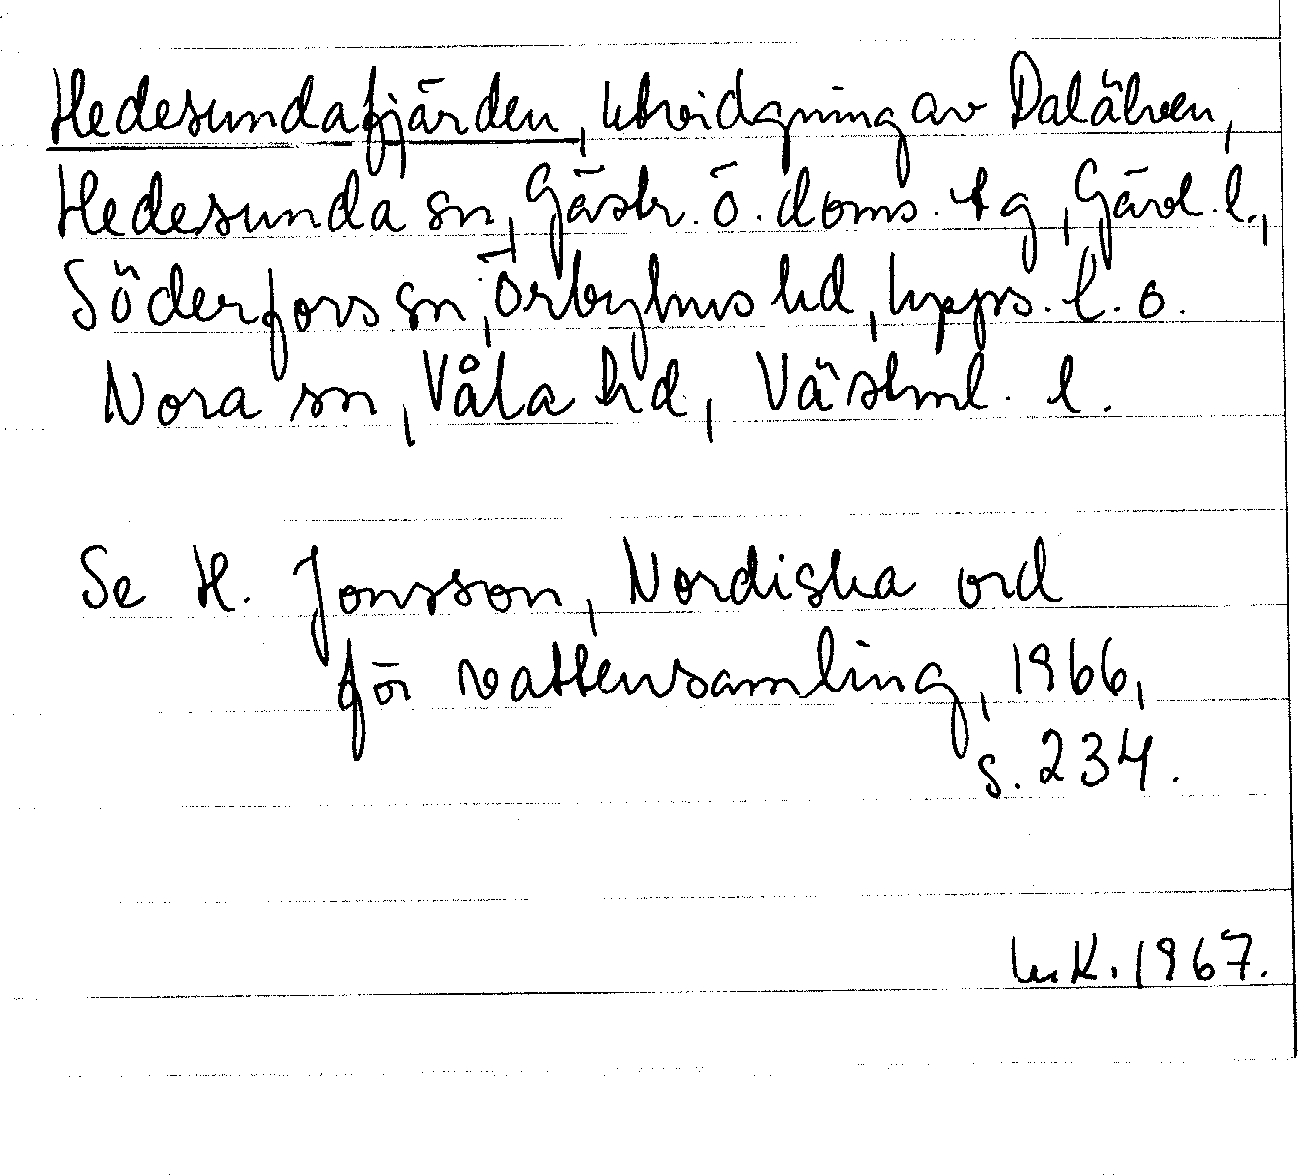 Hedesundafjärden, utvidgning av Dalälven,
Hedesunda sn, Gästr. ö. doms. tg, Gävl. l.,
Söderfors sn, Örbyhus hd, Upps. l. o.
Nora sn, Våla hd, Västml. l.
Se H. Jonsson, Nordiska ord
för vattensamling, 1966,
s. 234.
K. 1967.